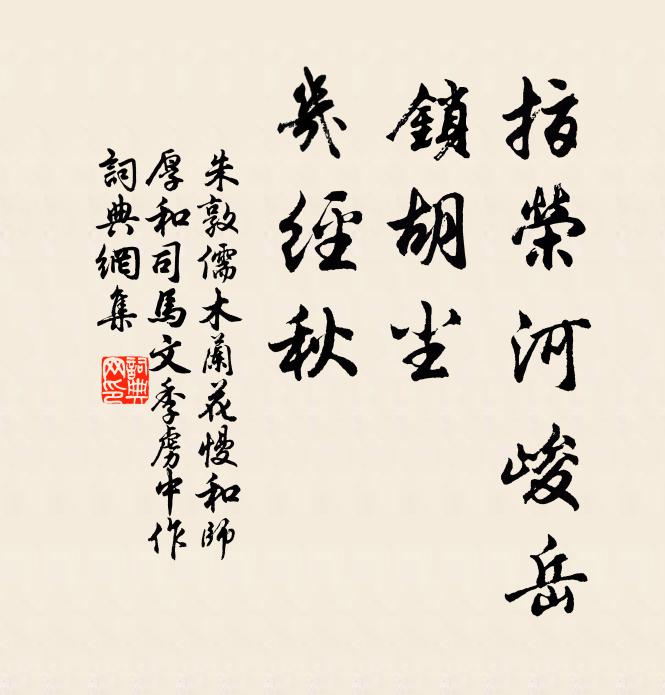 指榮河峻岳
鎖胡塵
幾經秋
朱敦儒木蘭花慢和師
厚和司馬文季虜中作
詞典網集
詞典
网印